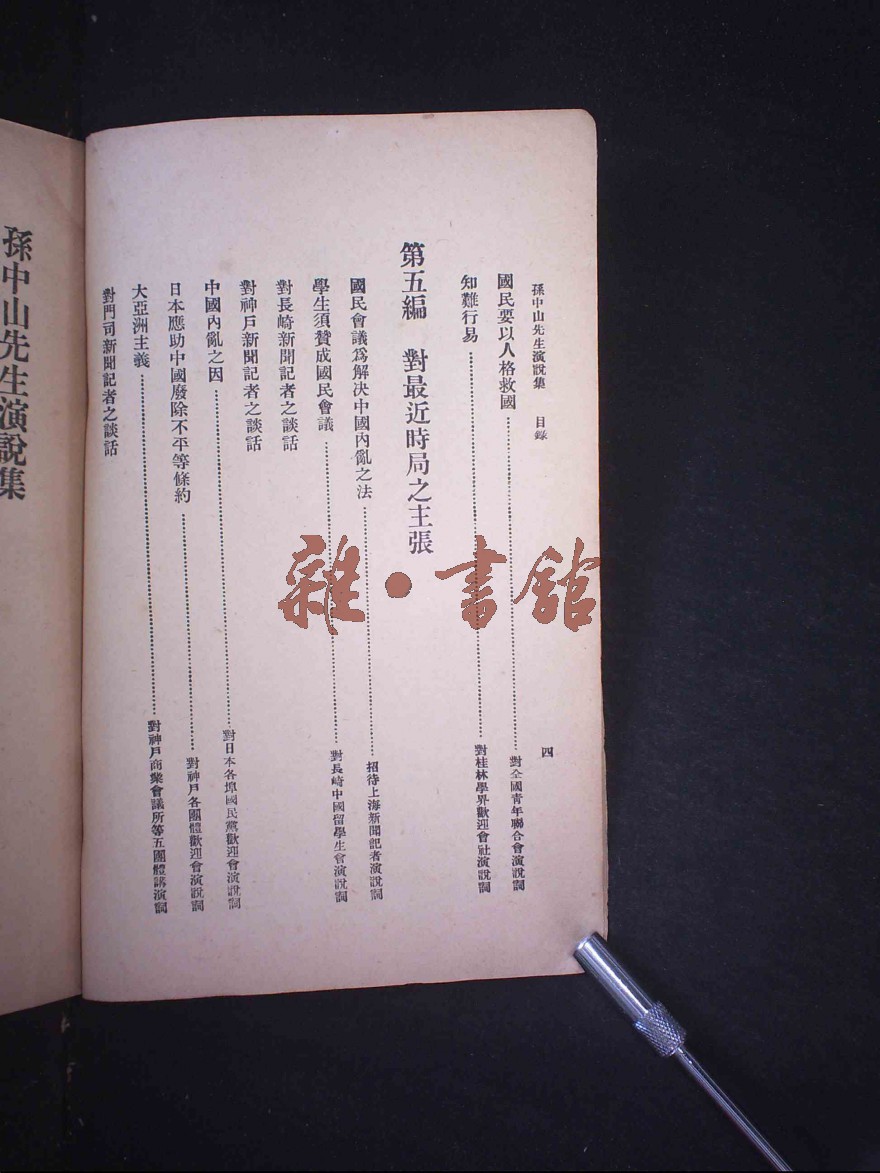 孫中山先生演說集　目錄　四
國民要以人格救國……對全國青年聯合會演說詞
知難行易……對桂林學界歡迎會社演說詞
第五編　對最近時局之主張
國民會議爲解決中國內亂之法……招待上海新聞記者演說詞
學生須贊成國民會議……對長崎中國留學生會演說詞
對長崎新聞記者之談話
對神戶新聞記者之談話
中國內亂之因……對日本各埠國民黨歡迎會演說詞
日本應助中國廢除不平等條約……對神戶各團體歡迎會演說詞
大亞洲主義……對神戶商業會議所等五團體講演詞
對門司新聞記者之談話
孫中山先生演說集
雜·書館